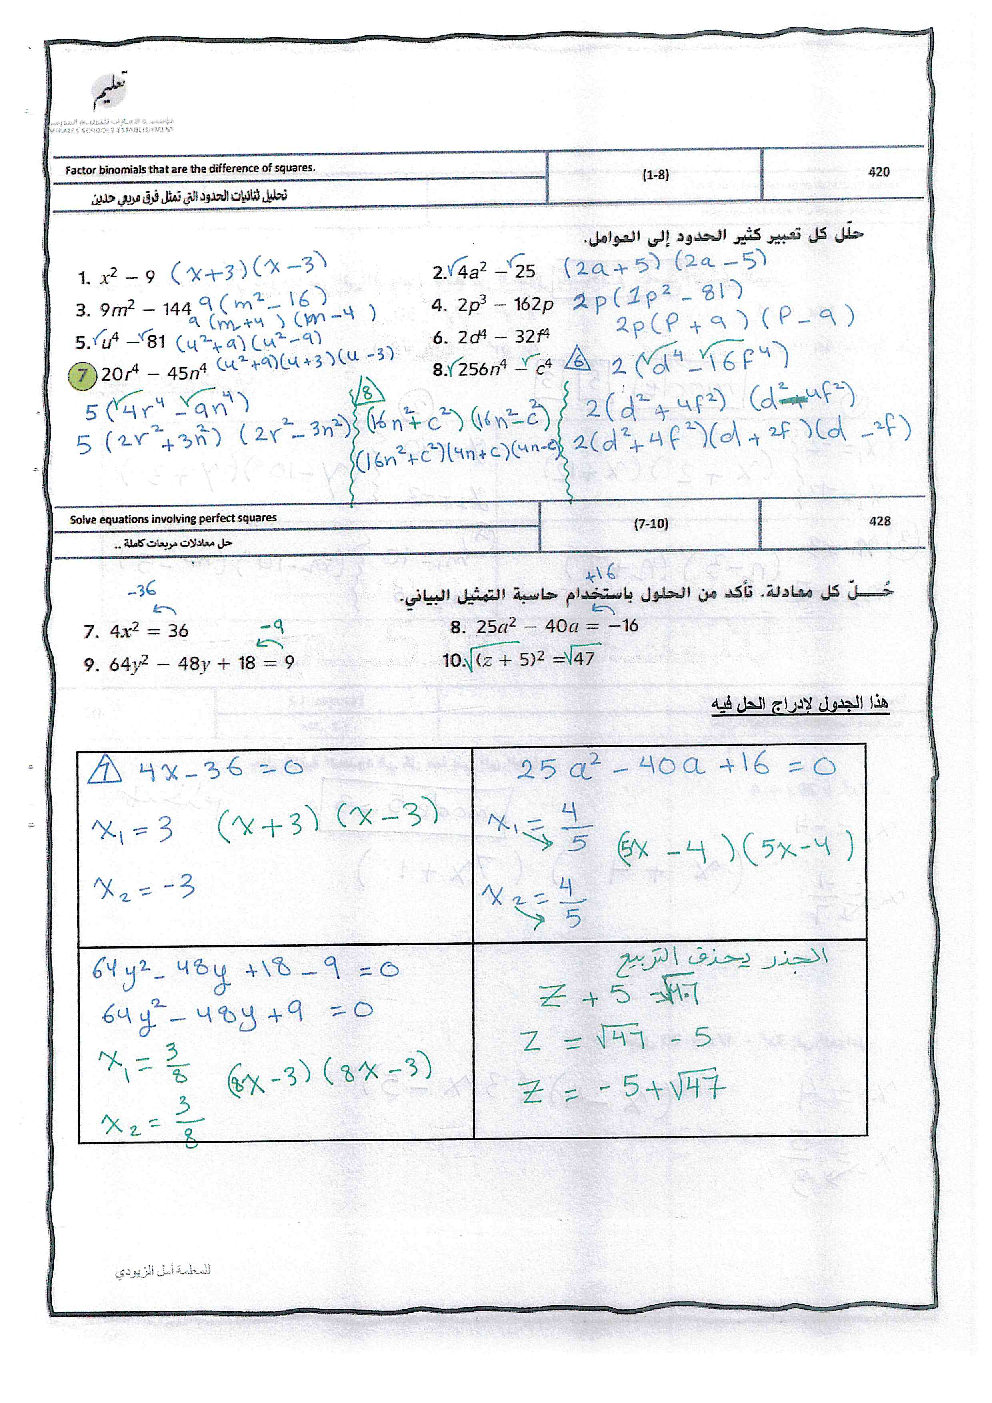 تعليم
Factor binomials that are the difference of squares.
تحليل ثنائيات الحدود التي تمثل فرق مربعي حدين
(1-8)
420
حلّل كل تعبير كثير الحدود إلى العوامل.
1. x² − 9 (x+3)(x−3)
2. √4a² − √25 (2a+5)(2a−5)
3. 9m² − 144 9(m²−16)
9(m+4)(m−4)
4. 2p³ − 162p 2p(1p²−81)
2p(p+9)(p−9)
5. √u⁴ − √81 (u²+9)(u²−9)
(u²+9)(u+3)(u−3)
6. 2d⁴ − 32f⁴
7 20r⁴ − 45n⁴
8. √256n⁴ − √c⁴
6 2(√d⁴ − √16f⁴)
2(d²+4f²)(d²−4f²)
2(d²+4f²)(d+2f)(d−2f)
5(√4r⁴ − √9n⁴)
5(2r²+3n²)(2r²−3n²)
8
(16n²+c²)(16n²−c²)
(16n²+c²)(4n+c)(4n−c)
Solve equations involving perfect squares
حل معادلات مربعات كاملة ..
(7-10)
428
حُـــــلّ كل معادلة. تأكد من الحلول باستخدام حاسبة التمثيل البياني.
-36
+16
7. 4x² = 36
8. 25a² − 40a = −16
-9
9. 64y² − 48y + 18 = 9
10. √(z + 5)² = √47
هذا الجدول لإدراج الحل فيه
7 4x−36=0
x₁=3 (x+3)(x−3)
x₂=−3
25a²−40a+16=0
x₁=4/5 (5x−4)(5x−4)
x₂=4/5
64y²−48y+18−9=0
64y²−48y+9=0
x₁=3/8 (8x−3)(8x−3)
x₂=3/8
الجذر يحذف التربيع
z+5=√47
z=√47−5
z=−5+√47
للمعلمة أمل الزيودي